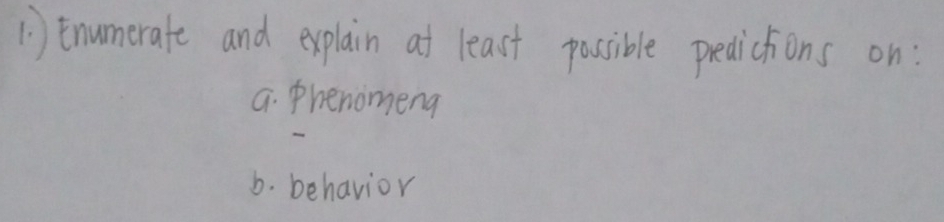 1.) Enumerate and explain at least possible predictions on:
a. Phenomena
b. behavior